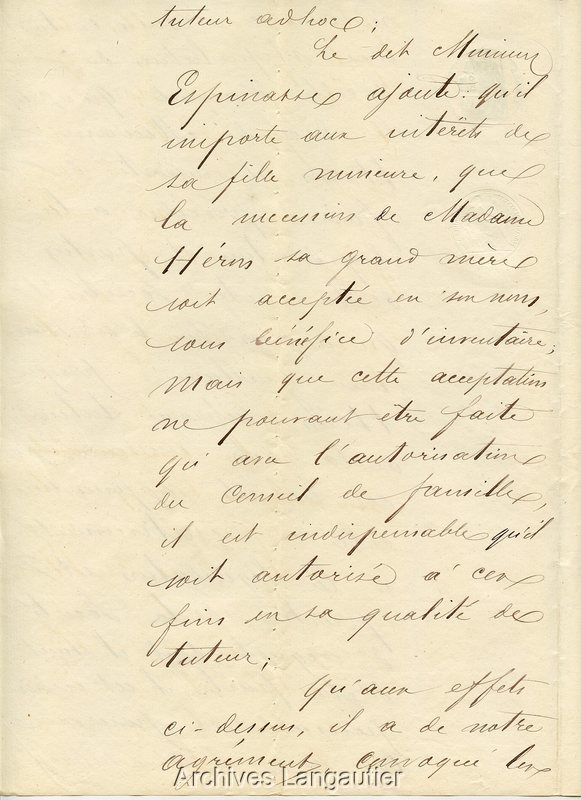 tuteur adhoc;
Le dit Monsieur
Espinasse ajoute: qu'il
importe aux intérêts de
sa fille mineure, que
la succession de Madame
Héron sa grand mère
soit acceptée en son nom,
sous bénéfice d'inventaire;
Mais que cette acceptation
ne pouvant être faite
qu'avec l'autorisation
du Conseil de famille,
il est indispensable qu'il
soit autorisé à ces
fins en sa qualité de
tuteur;
Qu'aux effets
ci-dessus, il a de notre
agrément, convoqué les
Archives Langautier